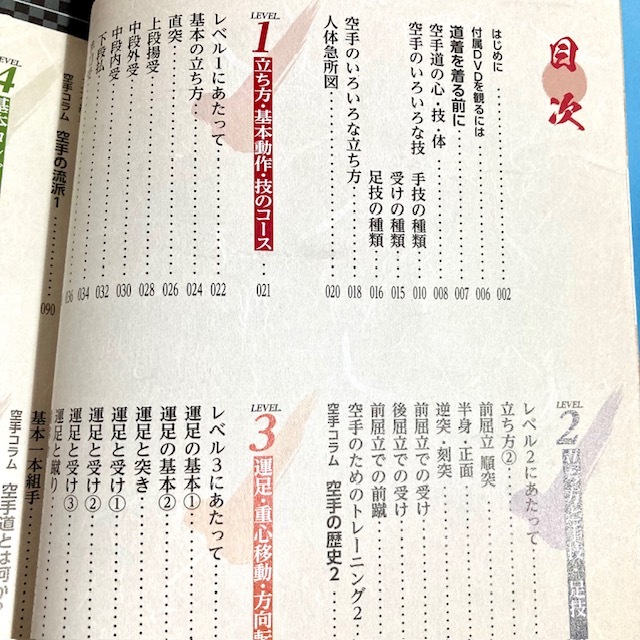 目次
はじめに 002
付属DVDを観るには 006
道着を着る前に 007
空手道の心・技・体 008
空手のいろいろな技 手技の種類 010
受けの種類 015
足技の種類 016
空手のいろいろな立ち方 018
人体急所図 020
LEVEL 1 立ち方・基本動作・技のコース 021
レベル1にあたって 022
基本の立ち方 024
直突 026
上段揚受 028
中段外受 030
中段内受 032
下段払 034
036
空手コラム 空手の流派1 090
LEVEL 2
足技
レベル2にあたって
立ち方②
前屈立 順突
半身・正面
逆突・刻突
前屈立での受け
後屈立での受け
前屈立での前蹴
空手のためのトレーニング2
空手コラム 空手の歴史2
LEVEL 3 運足・重心移動・方向転
レベル3にあたって
運足の基本①
運足の基本②
運足と突き
運足と受け①
運足と受け②
運足と受け③
運足と蹴り
基本一本組手
空手コラム 空手道とは何か
LEVEL 4 基本